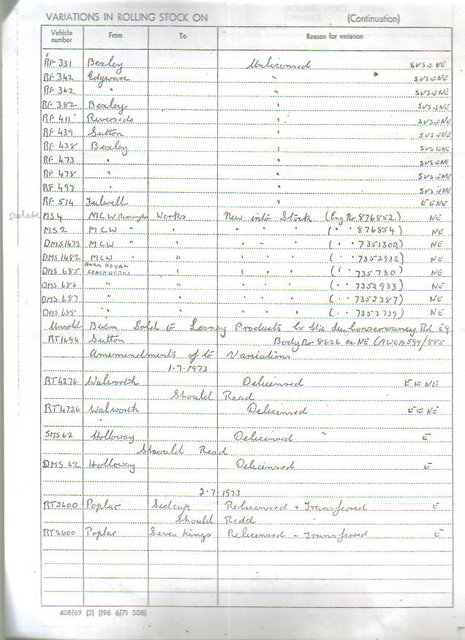 VARIATIONS IN ROLLING STOCK ON (Continuation)
Vehicle number From To Reason for variation
RF 331 Bexley Unlicensed SVSIGNE
RF 342 Edgware " SVSIGNE
RF 362 " " SVSIGNE
RF 382 Bexley " SVSIGNE
RF 411 Riverside " SVSIGNE
RF 429 Sutton " SVSIGNE
RF 438 Bexley " SVSIGNE
RF 473 " " SVSIGNE
RF 478 " " SVSIGNE
RF 492 " " SVSIGNE
RF 514 Fulwell " EENE
Delete MS 4 MCW Works New into Stock (Eng No 876852) NE
MS 2 MCW " " " " ( " " 876854) NE
DMS 1472 MCW " " " " ( " " 7351302) NE
DMS 1482 MCW " " " " ( " " 7352932) NE
DMS 685 PARK ROYAL " " " " ( " " 735730) NE
DMS 686 " " " " " ( " " 7352933) NE
DMS 687 " " " " " ( " " 7352387) NE
DMS 688 " " " " " ( " " 7353739) NE
Sold to Products Rd E4
RT 1694 Sutton Body No 8626 ex NE
Amemendments of to Variations
1.7.1973
RT 4276 Walworth Delicensed EENE
Should Read
RT 4726 Walworth Delicensed EENE
SMS 62 Holloway Delicensed E
Should Read
DMS 62 Holloway Delicensed E
2.7.1973
RT 2600 Poplar Sidcup Relicensed & Transferred E
Should Redd
RT 2600 Poplar Seven Kings Relicensed & Transferred E
408/69 (2) (196 6/71 508)